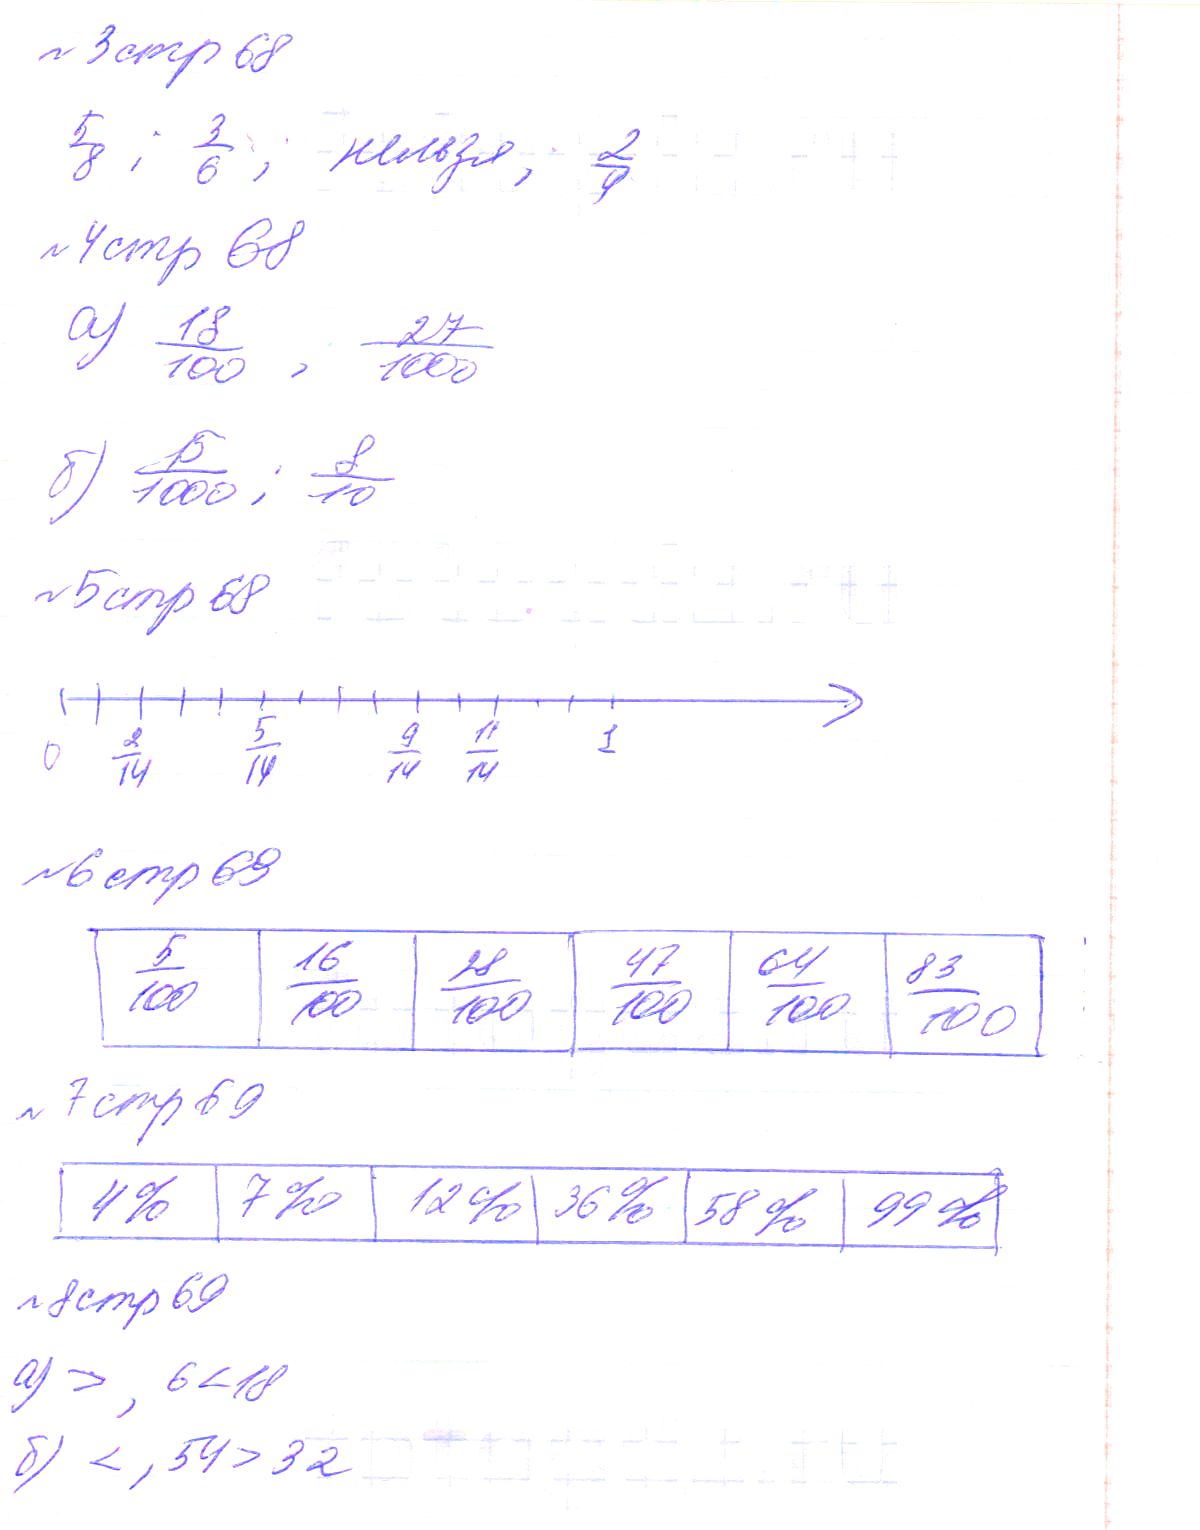 №3 стр 68
5/8 ; 3/6 ; нельзя, 2/4
№4 стр 68
а) 18/100 , 27/1000
б) 15/1000 ; 8/10
№5 стр 68
0 2/14 5/14 9/14 11/14 1
№6 стр 69
5/100 16/100 28/100 47/100 64/100 83/100
№7 стр 69
4% 7% 12% 36% 58% 99%
№8 стр 69
а) > , 6 < 18
б) < , 54 > 32